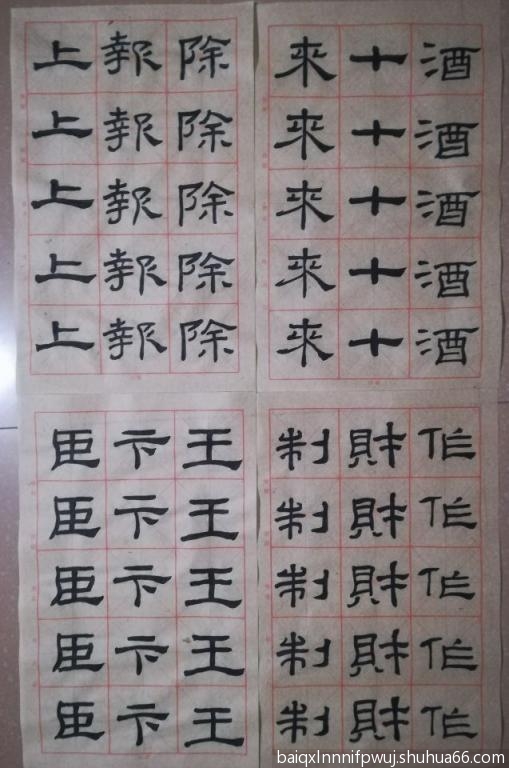 酒酒酒酒酒
十十十十十
來來來來來
除除除除除
報報報報報
上上上上上
作作作作作
財財財財財
制制制制制
王王王王王
卞卞卞卞卞
臣臣臣臣臣
baiqxlnnnifpwuj.shuhua66.com